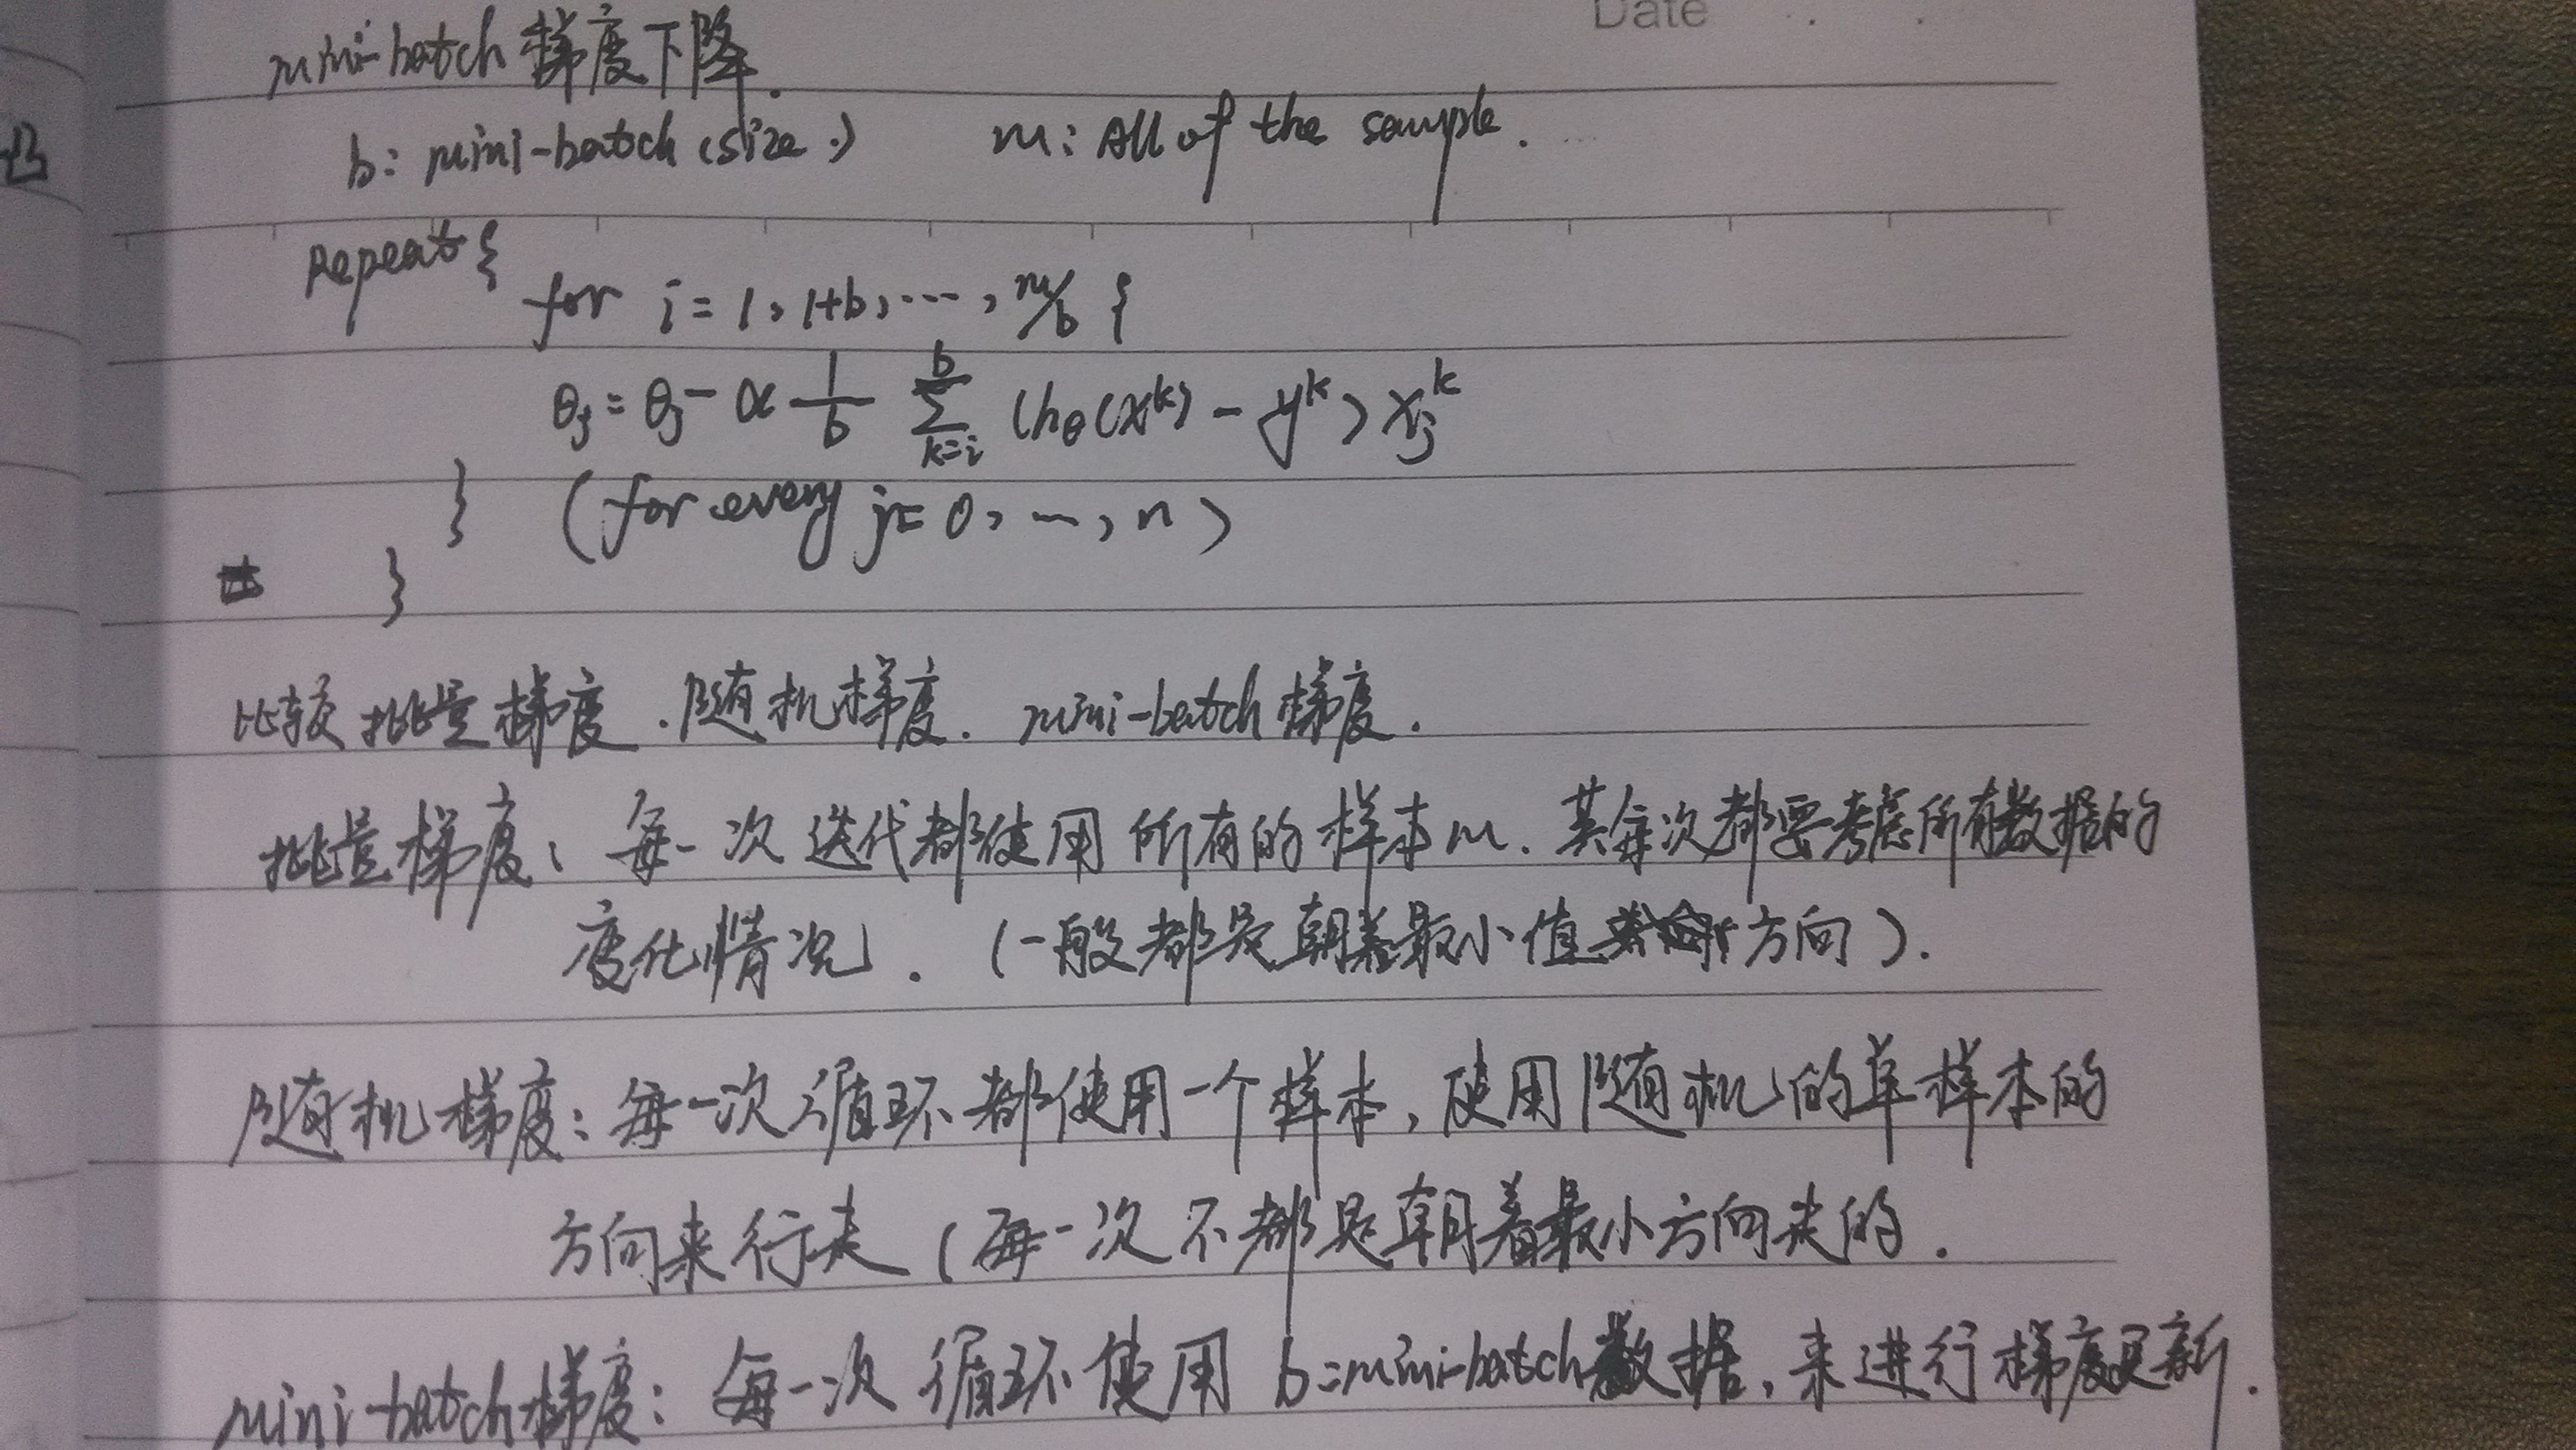 Date
mini-batch 梯度下降.
b: mini-batch (size.) m: All of the sample.
Repeat {
for i = 1, 1+b, ..., m/b {
θj = θj - α 1/b ∑_{k=i}^{b} (hθ(x^k) - y^k) x_j^k
} (for every j = 0, ..., n)
}
比较批量梯度.随机梯度. mini-batch 梯度.
批量梯度: 每一次迭代都使用所有的样本m. 其每次都要考虑所有数据的
变化情况. (一般都是朝着最小值方向).
随机梯度: 每一次循环都使用一个样本, 使用随机的单样本的
方向来行走 (每一次不都是朝着最小方向走的.
mini-batch梯度: 每一次循环使用 b=mini-batch数据, 来进行梯度更新.